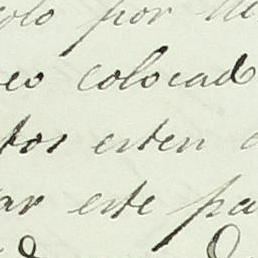 solo por
eo colocad
tos esten
ar este pa